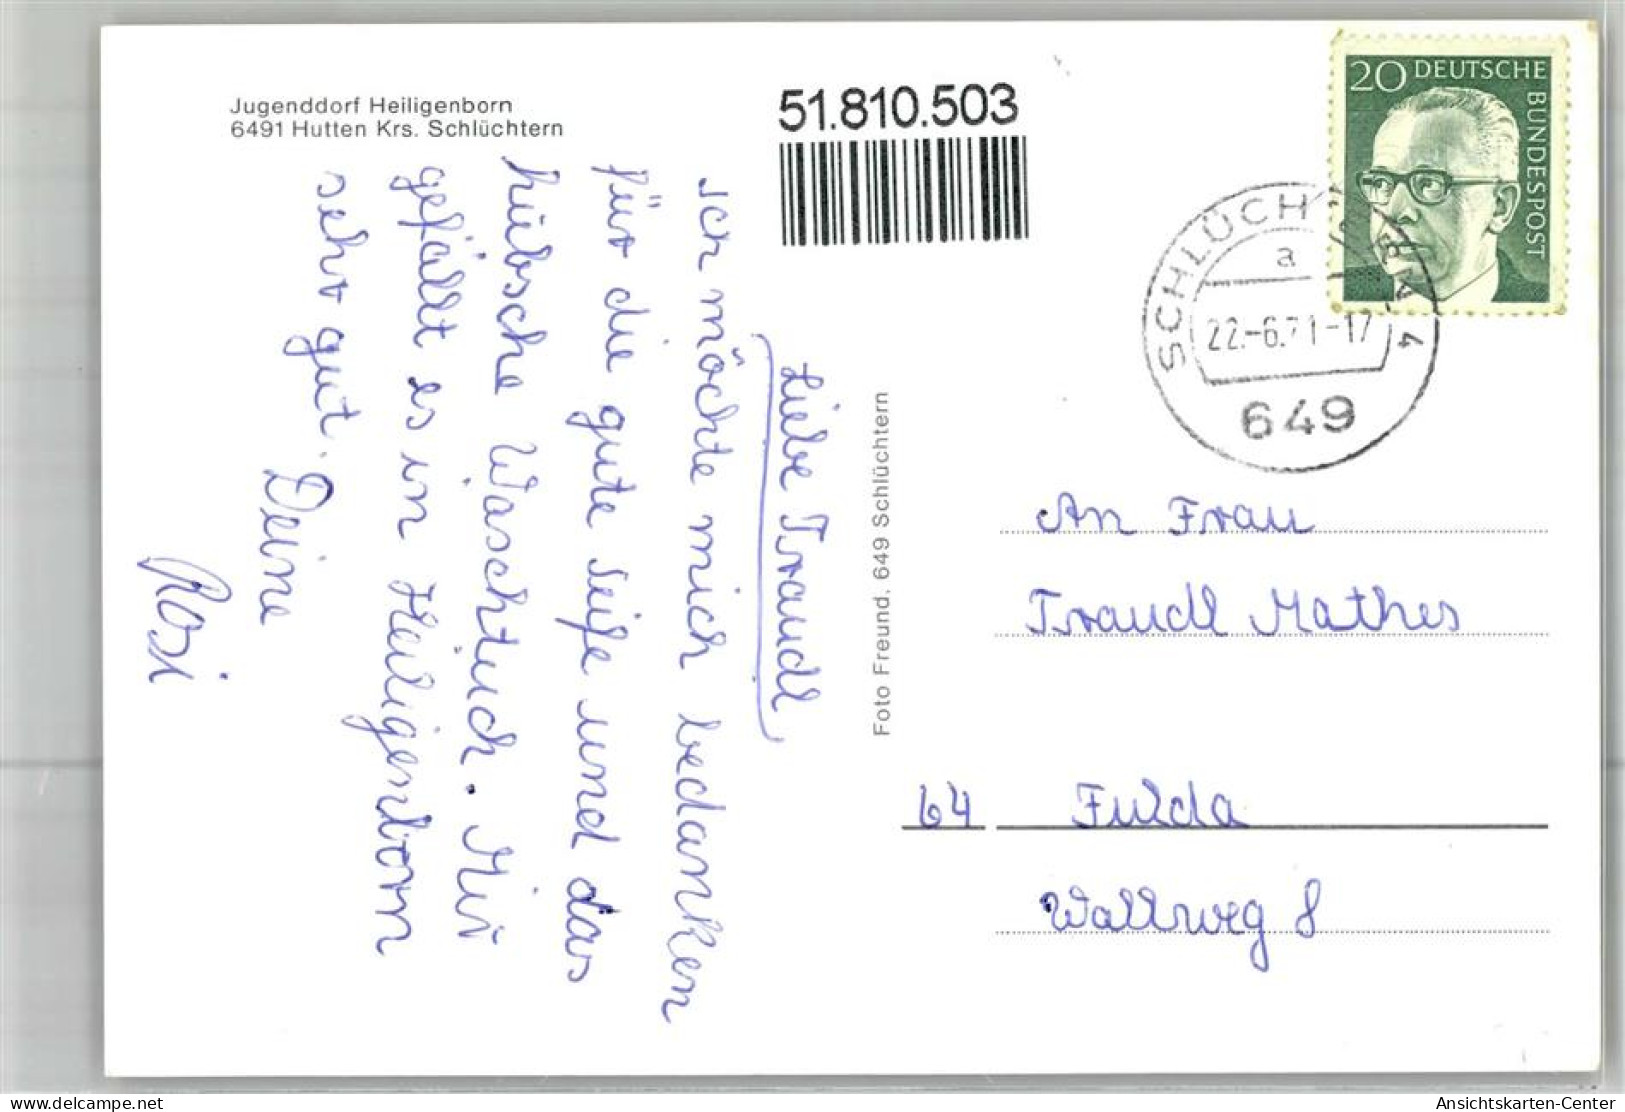 Jugenddorf Heiligenborn
6491 Hutten Krs. Schlüchtern
51.810.503
20 DEUTSCHE
BUNDESPOST
SCHLÜCH
a
22.-6.71-17
649
Liebe Traudl,
ich möchte mich bedanken
für die gute Seife und das
hübsche Waschtuch. Mir
gefällt es in Heiligenborn
sehr gut. Deine
Rosi
Foto Freund, 649 Schlüchtern
An Frau
Traudl Mathes
64 Fulda
Wallweg 8
Ansichtskarten-Center